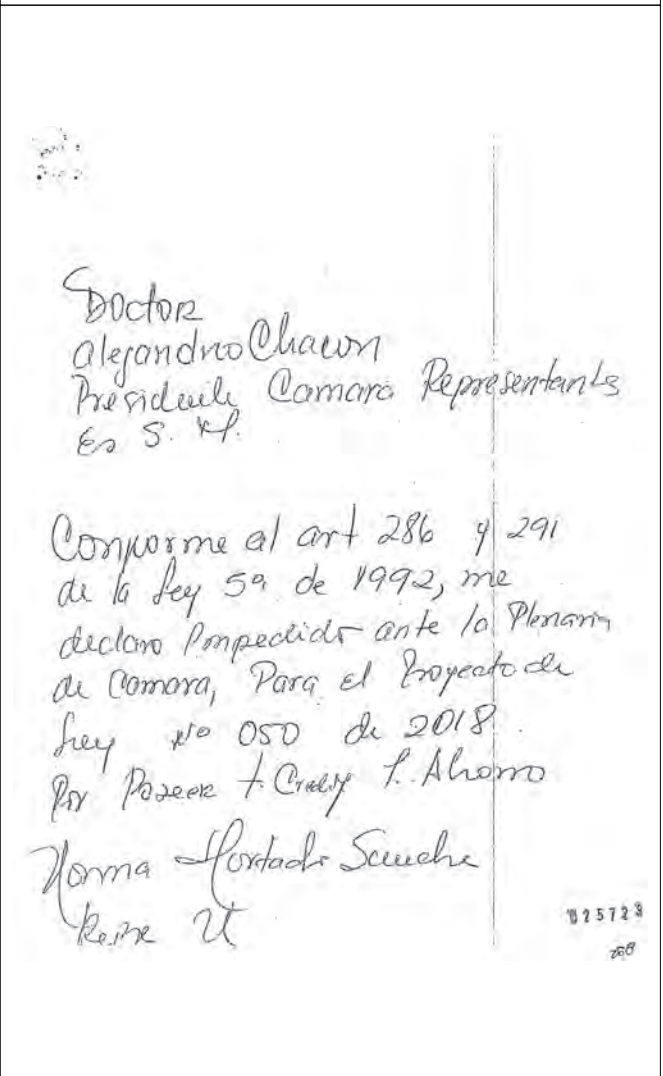 Doctor
Alejandro Chacon
Presidente Camara Representantes
En S. M.
Conforme al art 286 y 291
de la Ley 5ª de 1992, me
declaro Impedido ante la Plenaria
de Camara, Para el Proyecto de
Ley Nº 050 de 2018.
Por Poseer t. Cred y T. Ahorro
Norma Hurtado Sanche
025723